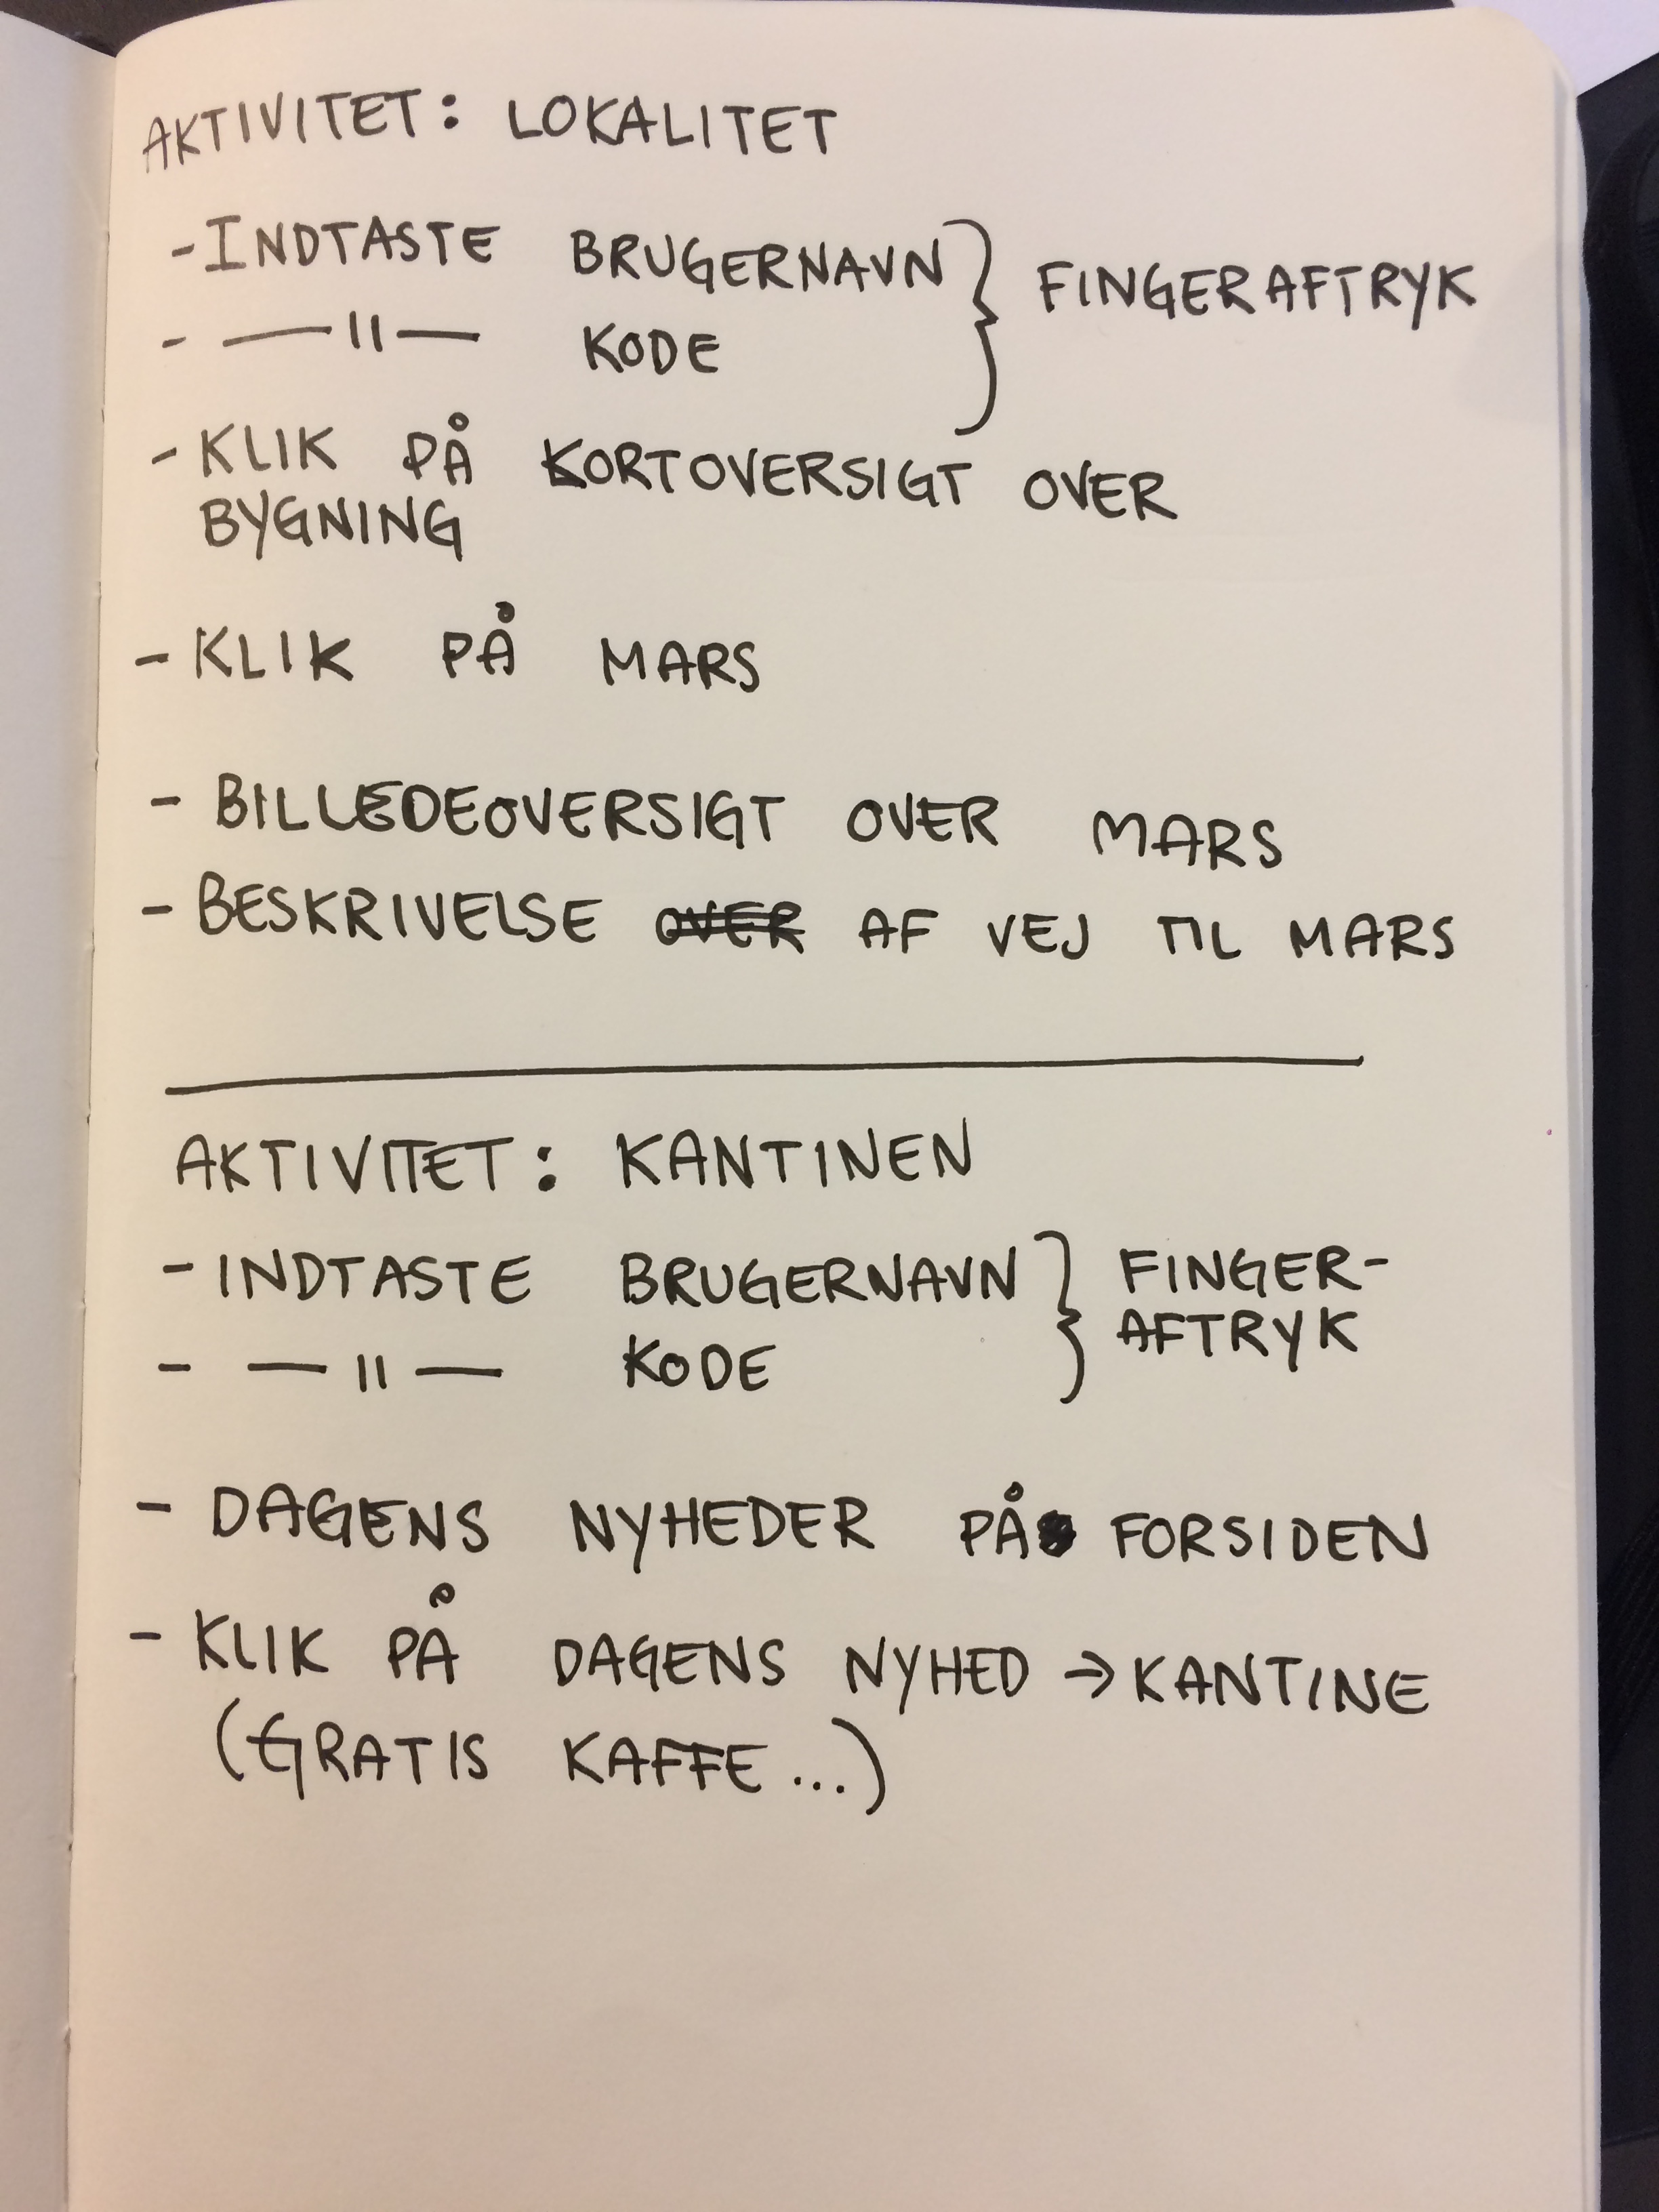 AKTIVITET: LOKALITET
- INDTASTE BRUGERNAVN } FINGERAFTRYK
- —— II —— KODE
- KLIK PÅ KORTOVERSIGT OVER
BYGNING
- KLIK PÅ MARS
- BILLEDEOVERSIGT OVER MARS
- BESKRIVELSE OVER AF VEJ TIL MARS
AKTIVITET: KANTINEN
- INDTASTE BRUGERNAVN } FINGER-
AFTRYK
- — II — KODE
- DAGENS NYHEDER PÅ FORSIDEN
- KLIK PÅ DAGENS NYHED → KANTINE
(GRATIS KAFFE ...)